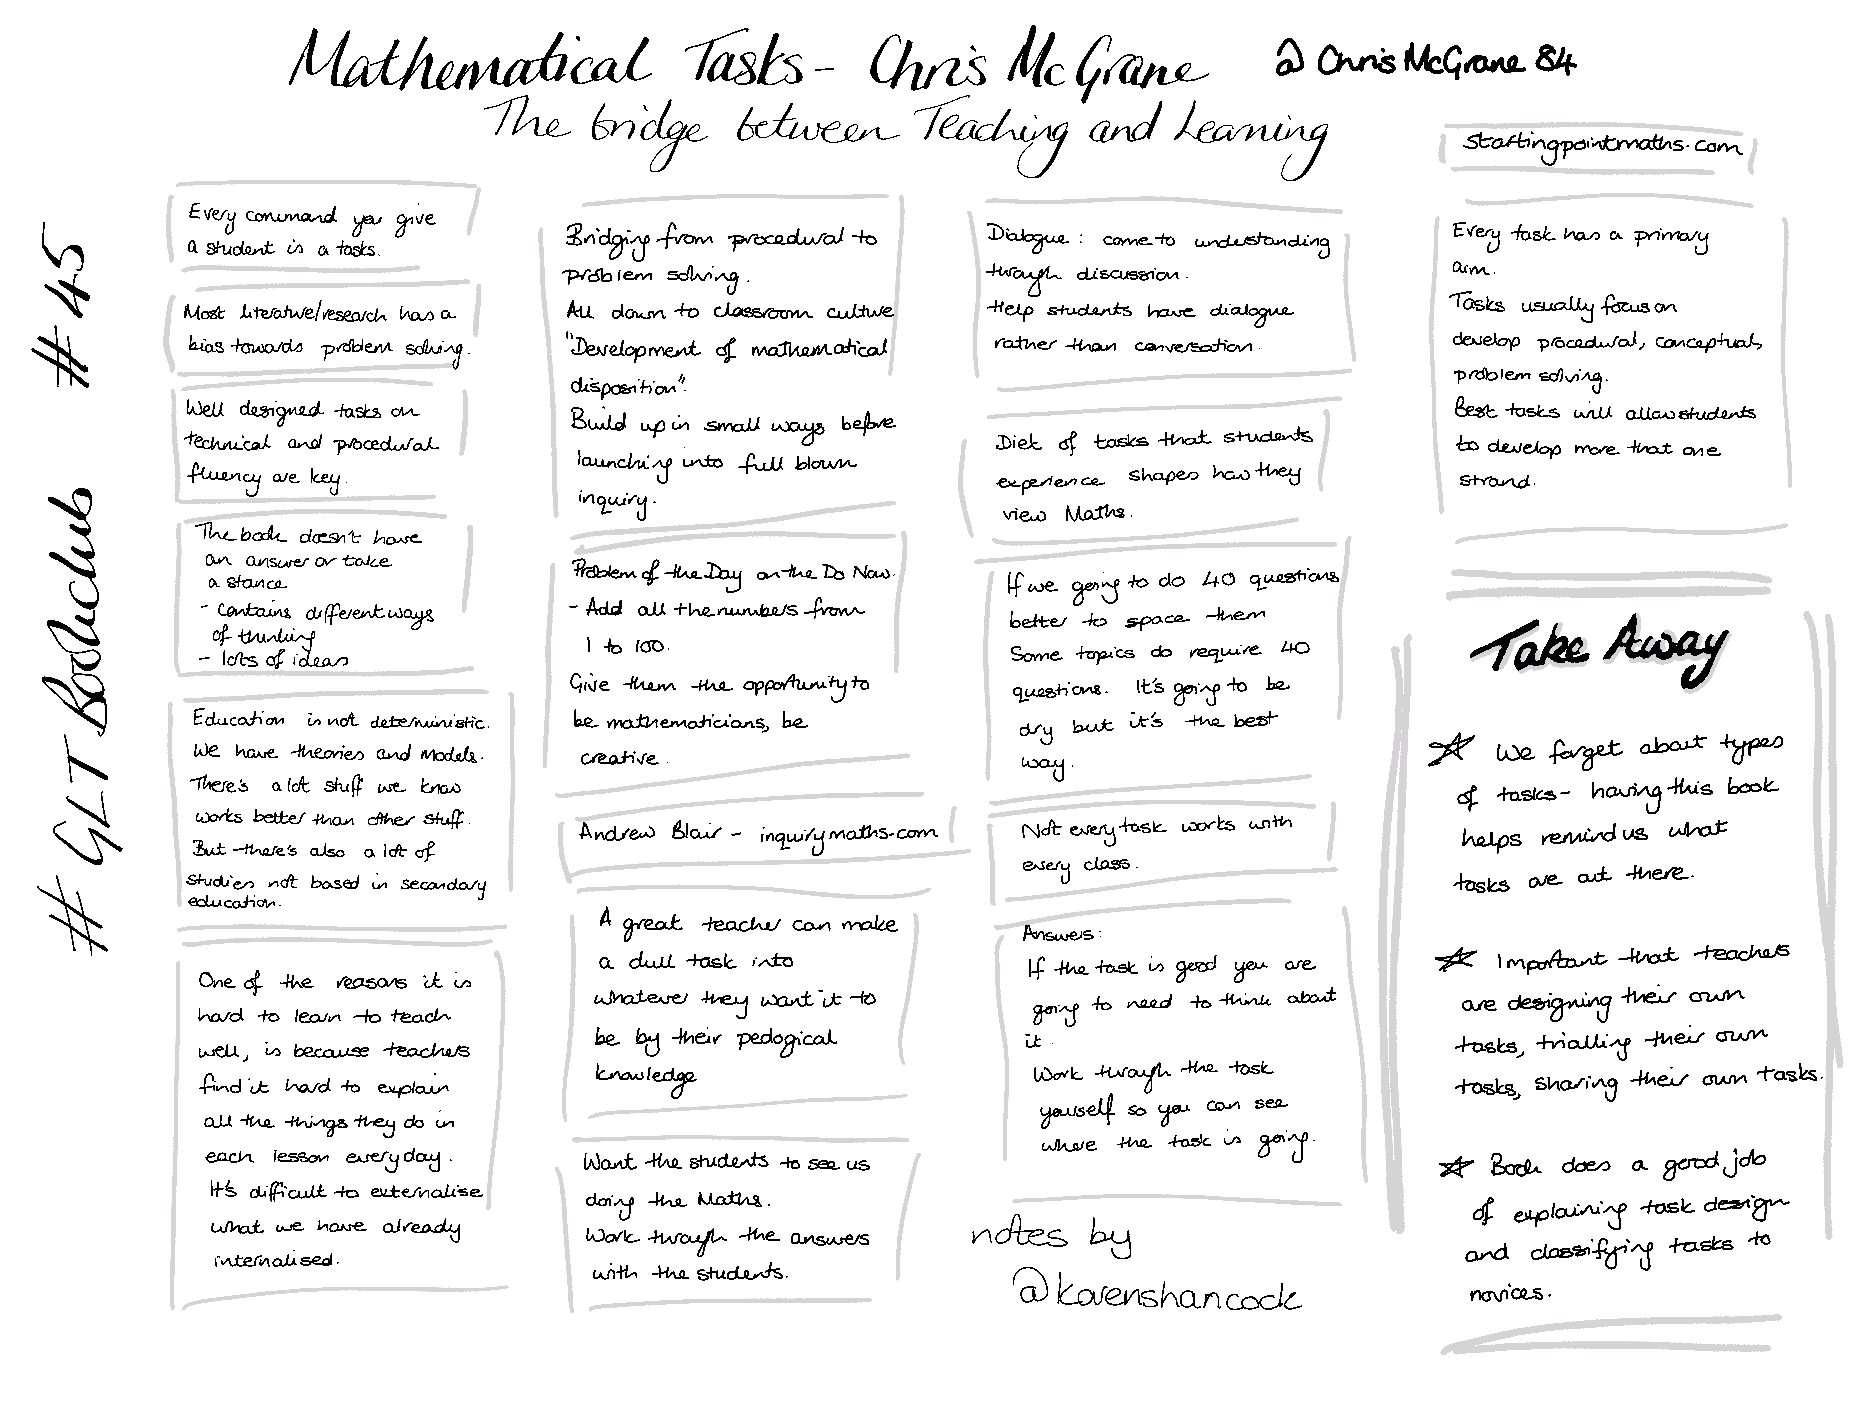 Mathematical Tasks - Chris McGrane @ChrisMcGrane84
The bridge between Teaching and Learning
startingpointmaths.com
# GLT Bookclub #45
Every command you give
a student is a tasks.
Most literative/research has a
bias towards problem solving.
Well designed tasks on
technical and procedural
fluency are key.
The book doesn't have
an answer or take
a stance
- contains different ways
of thinking
- lots of ideas
Education is not deterministic.
We have theories and models.
There's a lot stuff we know
works better than other stuff.
But there's also a lot of
studies not based in secondary
education.
One of the reasons it is
hard to learn to teach
well, is because teachers
find it hard to explain
all the things they do in
each lesson everyday.
It's difficult to externalise
what we have already
internalised.
Bridging from procedural to
problem solving.
All down to classroom culture
"Development of mathematical
disposition".
Build up in small ways before
launching into full blown
inquiry.
Problem of the Day on the Do Now.
- Add all the numbers from
1 to 100.
Give them the opportunity to
be mathematicians, be
creative.
Andrew Blair - inquirymaths.com
A great teacher can make
a dull task into
whatever they want it to
be by their pedogical
knowledge
Want the students to see us
doing the Maths.
Work through the answers
with the students.
Dialogue: come to understanding
through discussion.
Help students have dialogue
rather than conversation.
Diet of tasks that students
experience shapes how they
view Maths.
If we going to do 40 questions
better to space them
Some topics do require 40
questions. It's going to be
dry but it's the best
way.
Not every task works with
every class.
Answers:
If the task is good you are
going to need to think about
it.
Work through the task
yourself so you can see
where the task is going.
notes by
@karenshancock
Every task has a primary
aim.
Tasks usually focus on
develop procedural, conceptual,
problem solving.
Best tasks will allow students
to develop more that one
strand.
Take Away
☆ We forget about types
of tasks - having this book
helps remind us what
tasks are out there.
☆ Important that teachers
are designing their own
tasks, trialling their own
tasks, sharing their own tasks.
☆ Book does a good job
of explaining task design
and classifying tasks to
novices.